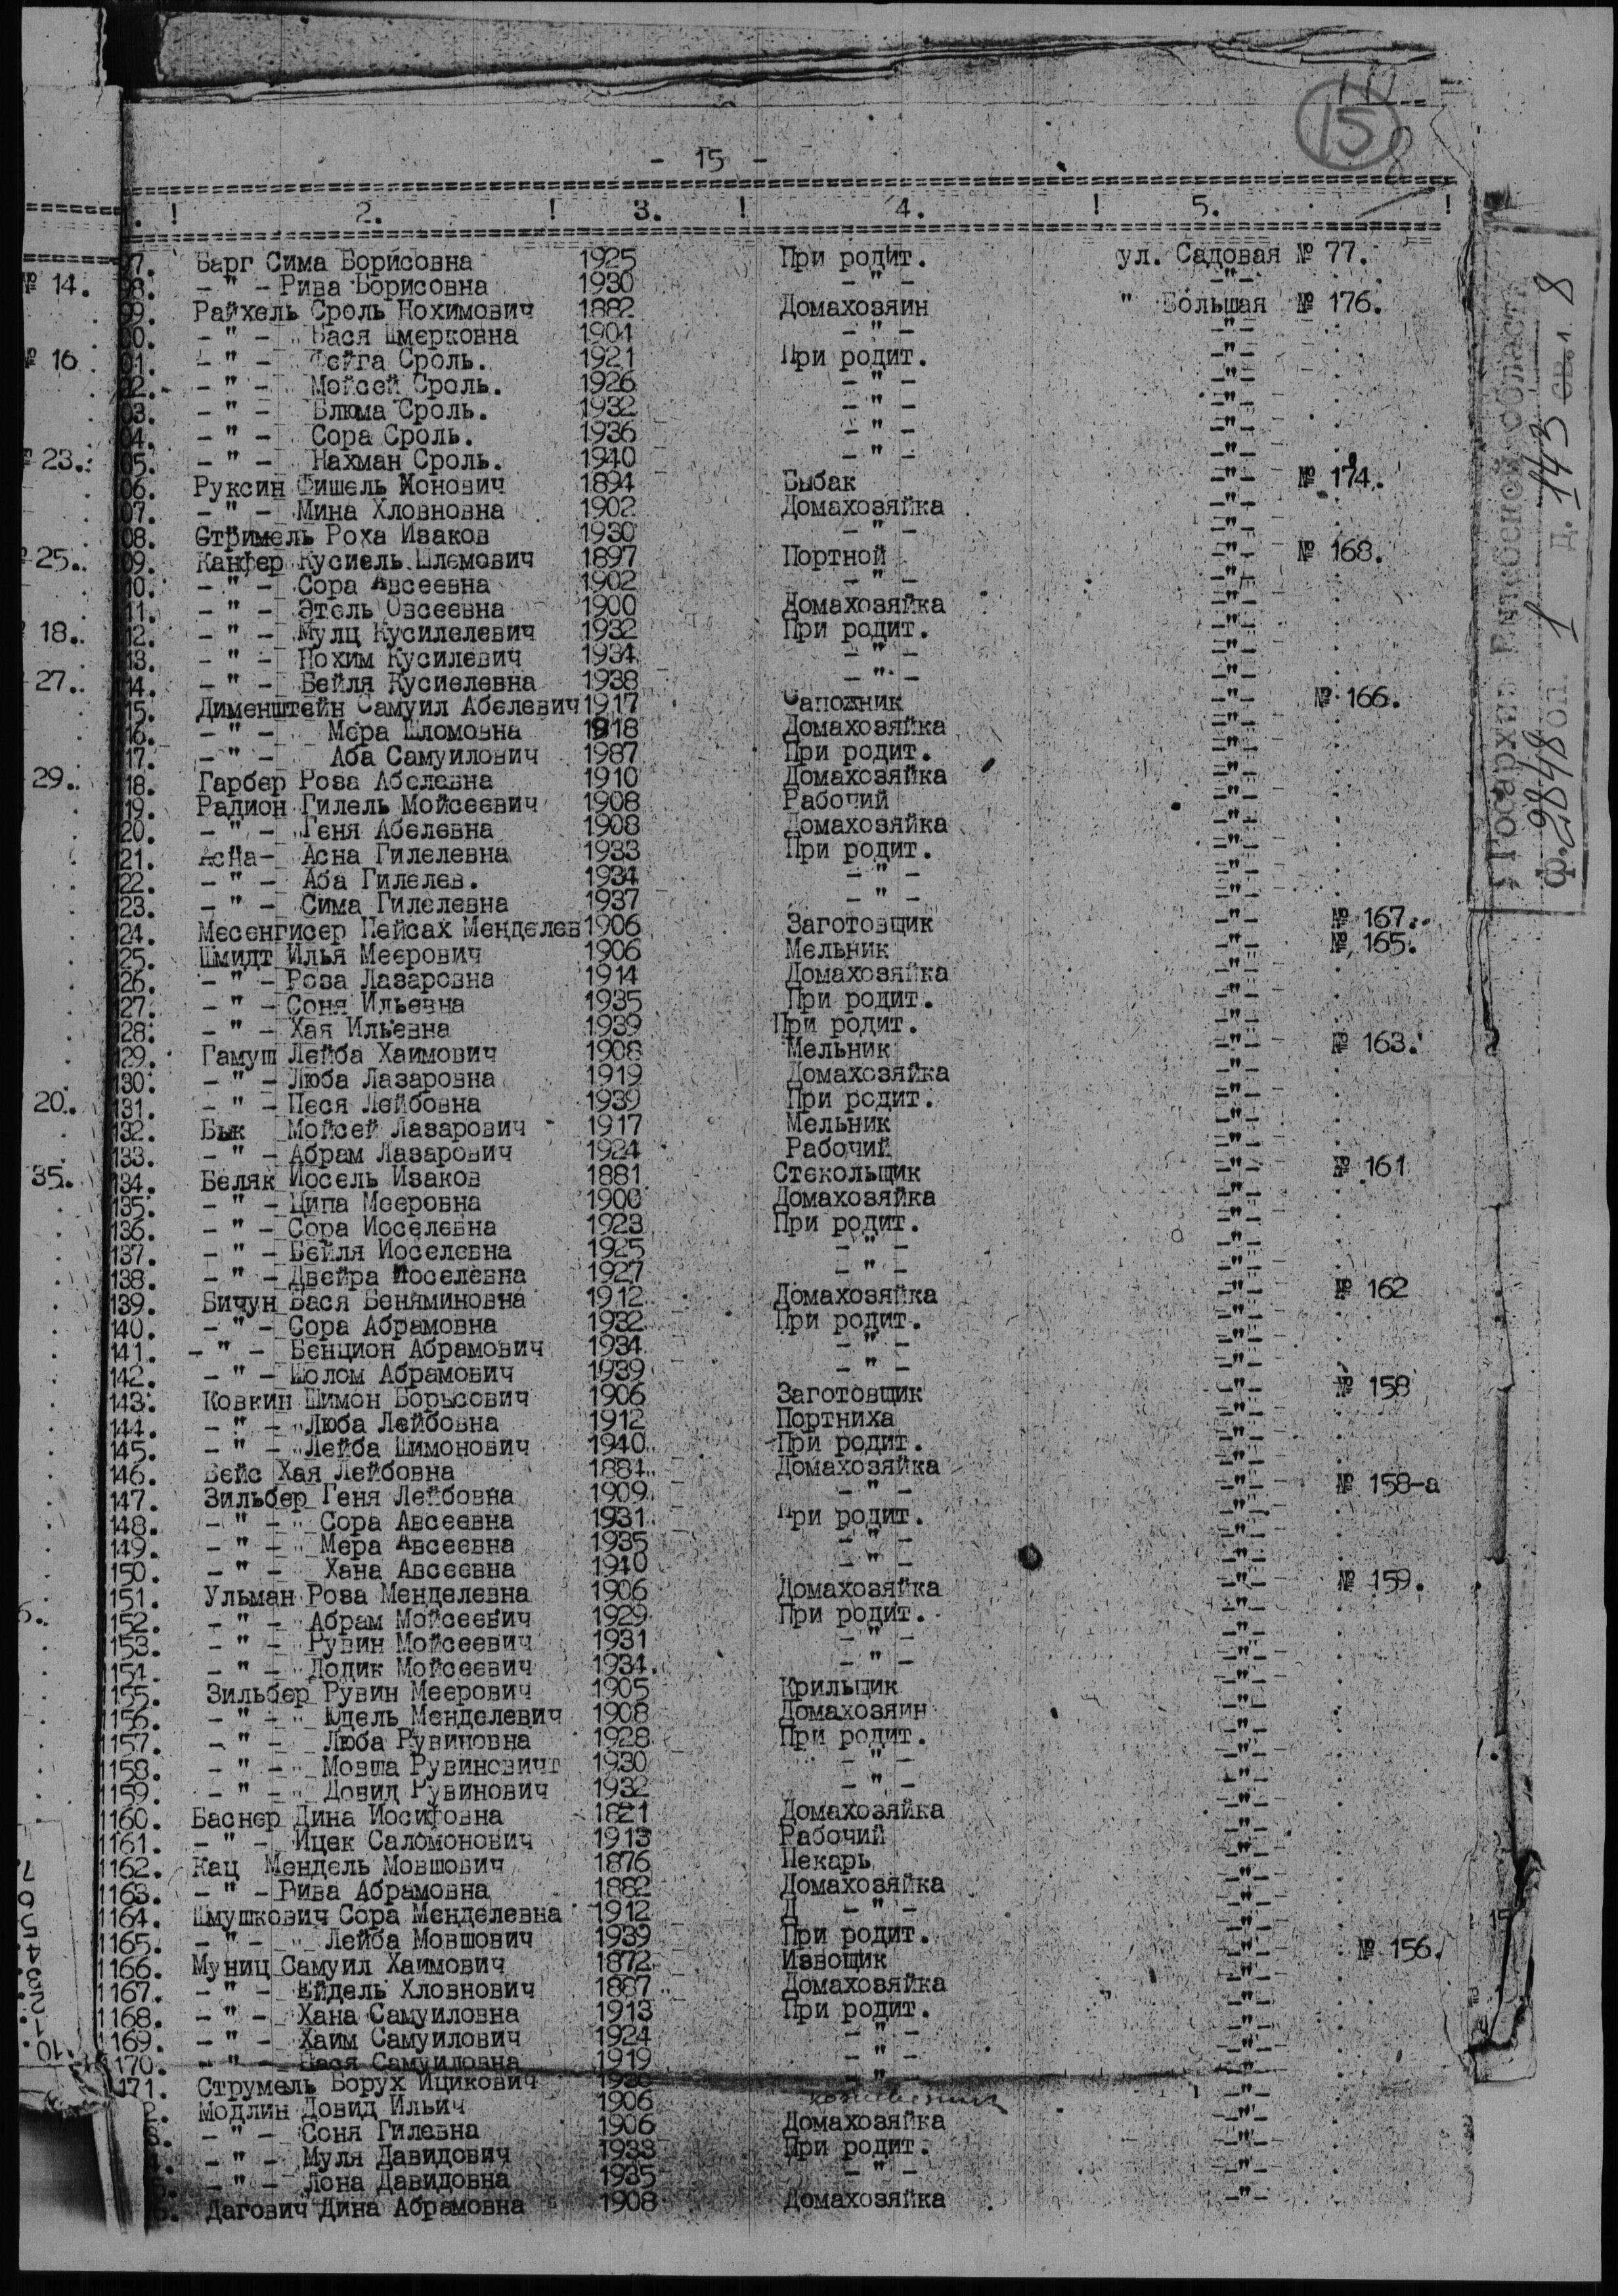 15
8
- 15 -
! 2. ! 3. ! 4. ! 5. !
97. Барг Сима Борисовна 1925 При родит. ул. Садовая № 77.
98. - " - Рива Борисовна 1930 - " - - " -
99. Райхель Сроль Нохимович 1882 Домахозяин " Большая № 176.
00. - " - Бася Шмерковна 1904 - " - - " -
01. - " - Фейга Сроль. 1921 При родит. - " -
02. - " - Мойсей Сроль. 1926 - " - - " -
03. - " - Блюма Сроль. 1932 - " - - " -
04. - " - Сора Сроль. 1936 - " - - " -
05. - " - Нахман Сроль. 1940 - " - - " -
06. Руксин Фишель Монович 1894 Быбак - " - № 174.
07. - " - Мина Хловновна 1902 Домахозяйка - " -
08. Стримель Роха Изаков 1930 - " - - " -
09. Канфер Кусиель Шлемович 1897 Портной - " - № 168.
10. - " - Сора Авсеевна 1902 - " - - " -
11. - " - Этель Овсеевна 1900 Домахозяйка - " -
12. - " - Мулц Кусилелевич 1932 При родит. - " -
13. - " - Нохим Кусилевич 1934 - " - - " -
14. - " - Бейля Кусиелевна 1938 - " - - " -
15. Дименштейн Самуил Абелевич 1917 Сапожник - " - № 166.
16. - " - Мера Шломовна 1918 Домахозяйка - " -
17. - " - Аба Самуилович 1987 При родит. - " -
18. Гарбер Роза Абелевна 1910 Домахозяйка - " -
19. Радион Гилель Мойсеевич 1908 Рабочий - " -
20. - " - Геня Абелевна 1908 Домахозяйка - " -
21. Асна- Асна Гилелевна 1933 При родит. - " -
22. - " - Аба Гилелев. 1934 - " - - " -
23. - " - Сима Гилелевна 1937 - " - - " -
24. Месенгисер Пейсах Менделев 1906 Заготовщик - " - № 167.
25. Шмидт Илья Меерович 1906 Мельник - " - № 165.
26. - " - Роза Лазаровна 1914 Домахозяйка - " -
27. - " - Соня Ильевна 1935 При родит. - " -
28. - " - Хая Ильевна 1939 При родит. - " -
129. Гамуш Лейба Хаимович 1908 Мельник - " - № 163.
130. - " - Люба Лазаровна 1919 Домахозяйка - " -
131. - " - Песя Лейбовна 1939 При родит. - " -
132. Бык Мойсей Лазарович 1917 Мельник - " -
133. - " - Абрам Лазарович 1924 Рабочий - " -
134. Беляк Иосель Изаков 1881 Стекольщик - " - № 161
135. - " - Ципа Мееровна 1900 Домахозяйка - " -
136. - " - Сора Иоселевна 1923 При родит. - " -
137. - " - Бейля Иоселевна 1925 - " - - " -
138. - " - Двейра Иоселевна 1927 - " - - " -
139. Бичун Бася Беняминовна 1912 Домахозяйка - " - № 162
140. - " - Сора Абрамовна 1932 При родит. - " -
141. - " - Бенцион Абрамович 1934 - " - - " -
142. - " - Шолом Абрамович 1939 - " - - " -
143. Ковкин Шимон Борьсович 1906 Заготовщик - " - № 158
144. - " - Люба Лейбовна 1912 Портниха - " -
145. - " - Лейба Шимонович 1940 При родит. - " -
146. Вейс Хая Лейбовна 1884 Домахозяйка - " -
147. Зильбер Геня Лейбовна 1909 - " - - " - № 158-а
148. - " - Сора Авсеевна 1931 При родит. - " -
149. - " - Мера Авсеевна 1935 - " - - " -
150. - " - Хана Авсеевна 1940 - " - - " -
151. Ульман Роза Менделевна 1906 Домахозяйка - " - № 159.
152. - " - Абрам Мойсеевич 1929 При родит. - " -
153. - " - Рувин Мойсеевич 1931 - " - - " -
1154. - " - Додик Мойсеевич 1934 - " - - " -
1155. Зильбер Рувин Меерович 1905 Крильщик - " -
1156. - " - Юдель Менделевич 1908 Домахозяин - " -
1157. - " - Люба Рувиновна 1928 При родит. - " -
1158. - " - Мовша Рувиновичт 1930 - " - - " -
1159. - " - Довид Рувинович 1932 - " - - " -
1160. Баснер Дина Иосифовна 1821 Домахозяйка - " -
1161. - " - Ицек Саломонович 1913 Рабочий - " -
1162. Кац Мендель Мовшович 1876 Пекарь - " -
1163. - " - Рива Абрамовна 1882 Домахозяйка - " -
1164. Шмушкович Сора Менделевна 1912 Д - " - - " -
1165. - " - Лейба Мовшович 1939 При родит. - " -
1166. Муниц Самуил Хаимович 1872 Извощик - " - № 156.
1167. - " - Ейдель Хловнович 1887 Домахозяйка - " -
1168. - " - Хана Самуиловна 1913 При родит. - " -
1169. - " - Хаим Самуилович 1924 - " - - " -
170. - " - Бася Самуиловна 1919 - " - - " -
171. Струмель Борух Ицикович - " - - " -
2. Модлин Довид Ильич 1906 - " -
- " - Соня Гилевна 1906 Домахозяйка - " -
- " - Муля Давидович 1933 При родит. - " -
- " - Лона Давидовна 1935 - " - - " -
Дагович Дина Абрамовна 1908 Домахозяйка - " -
№ 14.
№ 16
№ 23.
25.
18.
27.
29.
20.
35.
Госархив Витебской области
Ф. 2848 оп. 1 д. 143 св. 1 8